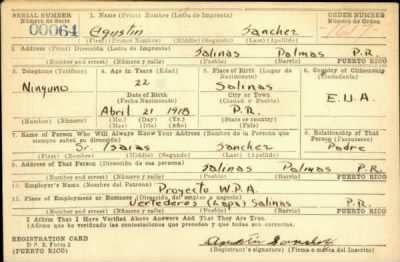 SERIAL NUMBER 1. Name (Print) Nombre (Letra de Imprenta) ORDER NUMBER
Número de Serie Número de Orden
00064 Agustin Sanchez
(First) (Primer Nombre) (Middle) (Segundo) (Last) (Apellido)
2. Address (Print) Dirección (Letra de Imprenta)
Salinas Palmas P.R.
(Number and street) (Número y calle) (Town) (Pueblo) (Barrio) PUERTO RICO
3. Telephone (Teléfono) 4. Age in Years (Edad) 5. Place of Birth (Lugar de Nacimiento) 6. Country of Citizenship (Ciudadanía)
Ninguno 22 Salinas
Date of Birth (Fecha Nacimiento) City or Town (Ciudad o Pueblo) E.U.A.
Abril 21 1918 P.R.
(Mo.) (Day) (Yr.) (State or country)
7. Name of Person Who Will Always Know Your Address (Nombre de la Persona que siempre sabrá su dirección) 8. Relationship of That Person (Parentesco)
Sr. Isaias Sanchez Padre
(First) (Primer Nombre) (Middle) (Segundo) (Last) (Apellido)
9. Address of That Person (Dirección de esa persona)
Salinas Palmas P.R.
(Number and street) (Número y calle) (Town) (Pueblo) (Barrio) PUERTO RICO
10. Employer's Name (Nombre del Patrono)
Proyecto W.P.A.
11. Place of Employment or Business (Dirección del empleo o negocio)
Vertederos (Lapa) Salinas P.R.
(Number and street) (Número y calle) (Town) (Pueblo) (Barrio) PUERTO RICO
I Affirm That I Have Verified Above Answers And That They Are True.
Afirmo que he verificado las contestaciones que preceden y que todas son correctas.
REGISTRATION CARD
D. P. S. Form 1
(Registrant's signature) (Firma o marca del Inscrito)